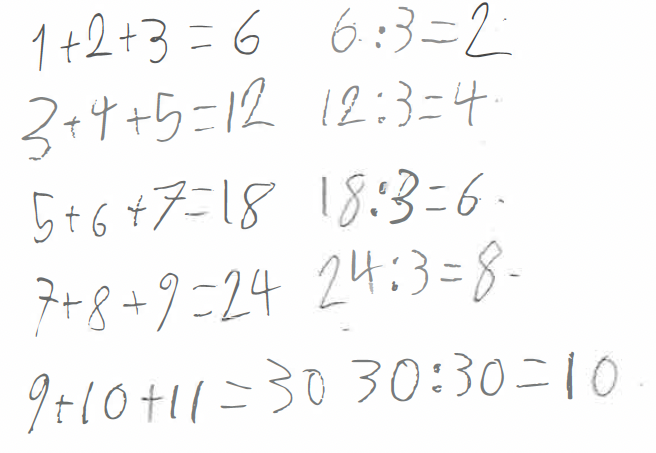 1+2+3=6 6:3=2
3+4+5=12 12:3=4
5+6+7=18 18:3=6
7+8+9=24 24:3=8
9+10+11=30 30:30=10